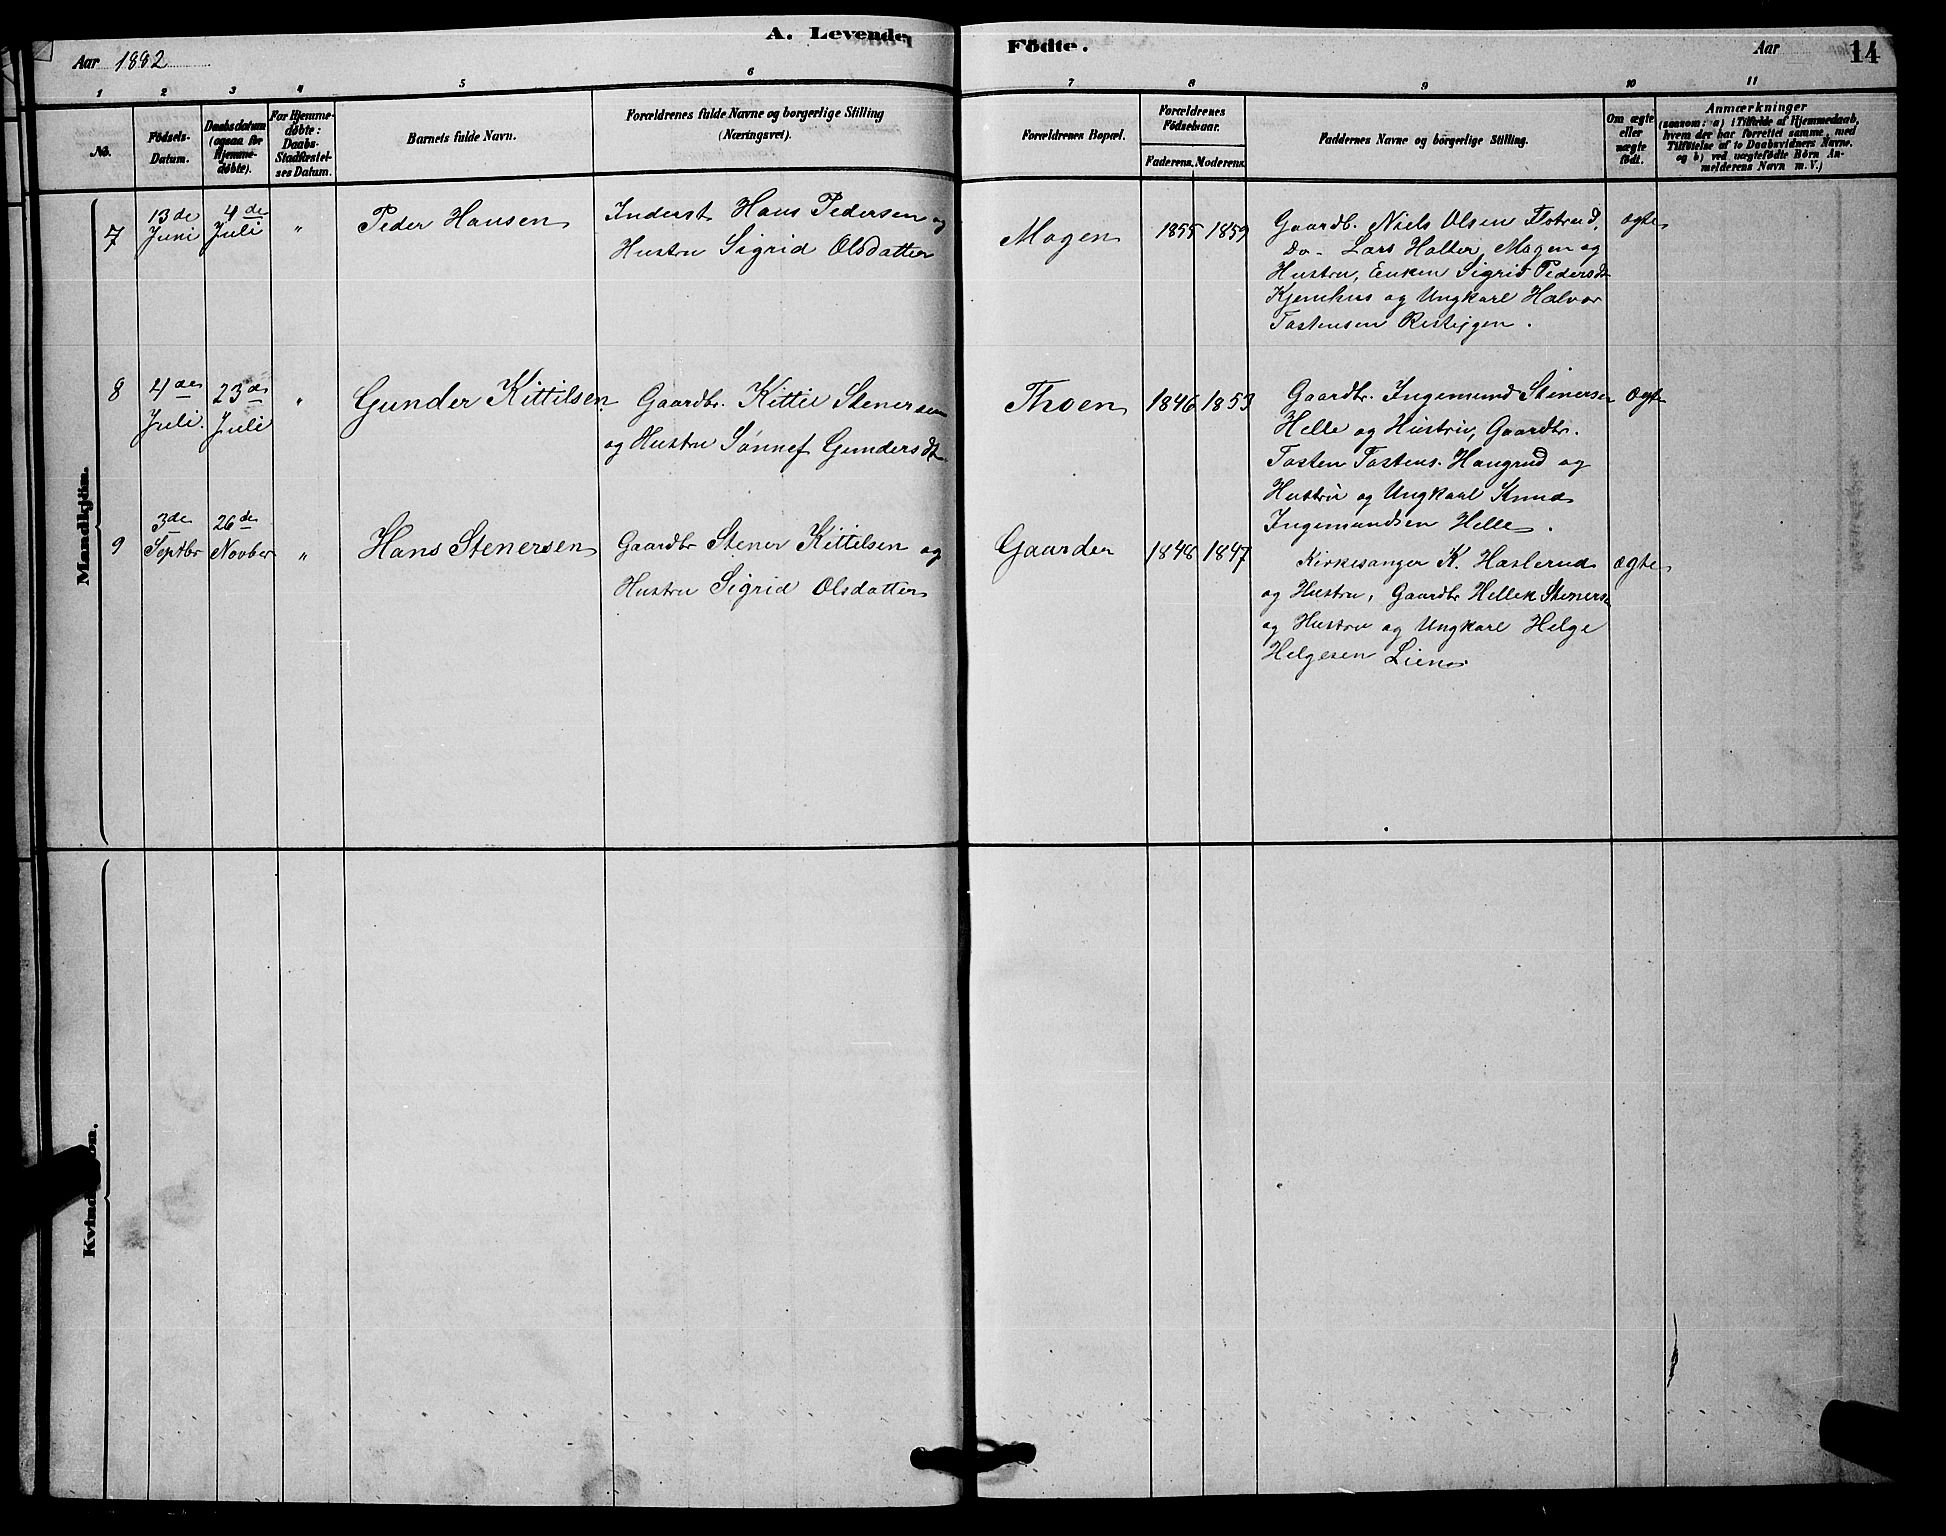 A. Levende
Födte.
Aar 1882
Aar
14
1 2 3 4 5 6 7 8 9 10 11
No.
Födsels-
Datum.
Daabsdatum
(ogsaa for
Hjemme-
døbte).
For Hjemme-
døbte:
Daabs-
Stadfæstel-
ses Datum.
Barnets fulde Navn.
Forældrenes fulde Navne og borgerlige Stilling
(Næringsvei).
Forældrenes Bopæl.
Forældrenes
Fødselsaar.
Faderens. Moderens.
Faddernes Navne og borgerlige Stilling.
Om ægte
eller
uægte
født.
Anmærkninger
(saasom: a) i Tilfælde af Hjemmedaab,
hvem der har forrettet samme, med
Tilføielse af to Daabsvidners Navne,
og b) ved uægtefødte Börn An-
melderens Navn m. V.)
Mandkjön.
7
13de
Juni
4de
Juli
"
Peder Hansen
Inderst Hans Pedersen og
Hustru Sigrid Olsdatter
Mogen
1855 1859
Gaardb. Niels Olsen Flotrud,
Do - Lars Halter Mogen og
Hustru, Enken Sigrid Pedersdt
Kjemhus og Ungkarl Halvor
Tostensen Risteigen.
ægte
8
4de
Juli.
23de
Juli
"
Gunder Kittilsen
Gaardbr. Kittil Stenersen
og Hustru Sønnef Gundersdt.
Thoen
1846 1853
Gaardbr. Ingemund Stenersen
Helle og Hustru, Gaardbr.
Tosten Tostens. Haugrud og
Hustru og Ungkarl Knud
Ingemundsen Helle.
ægte
9
3de
Septbr
26de
Novber
"
Hans Stenersen
Gaardbr Stener Kittilsen og
Hustru Sigrid Olsdatter
Gaarder
1848 1847
Kirkesanger K. Haslerud
og Hustru, Gaardbr Hellek Steners.
og Hustru og Ungkarl Helge
Helgesen Lien.
ægte